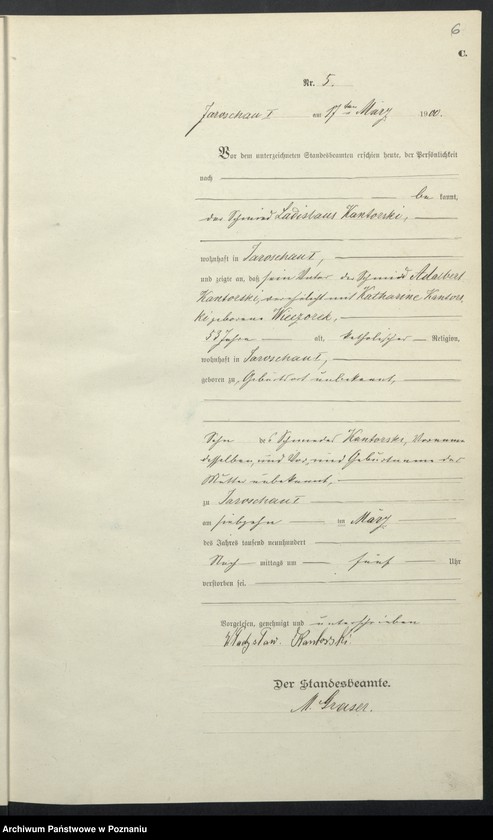 6
C.
Nr. 5.
Jaroschau I am 17ten März 1900.
Vor dem unterzeichneten Standesbeamten erschien heute, der Persönlichkeit
nach
be kannt,
der Schmied Ladislaus Kantorski,
wohnhaft in Jaroschau I,
und zeigte an, daß sein Vater der Schmied Adalbert
Kantorski, verehelicht mit Katharine Kantors
ki geborene Wieczorek,
53 Jahre alt, katholischer Religion,
wohnhaft in Jaroschau I,
geboren zu, Geburtsort unbekannt,
Sohn des Schmiedes Kantorski, Vorname
desselben, und Vor, und Geburtsname der
Mutter unbekannt,
zu Jaroschau I
am siebzehn ten März
des Jahres tausend neunhundert
Nach mittags um fünf Uhr
verstorben sei.
Vorgelesen, genehmigt und unterschrieben
Władysław Kantorski
Der Standesbeamte.
M. Graser.
Archiwum Państwowe w Poznaniu